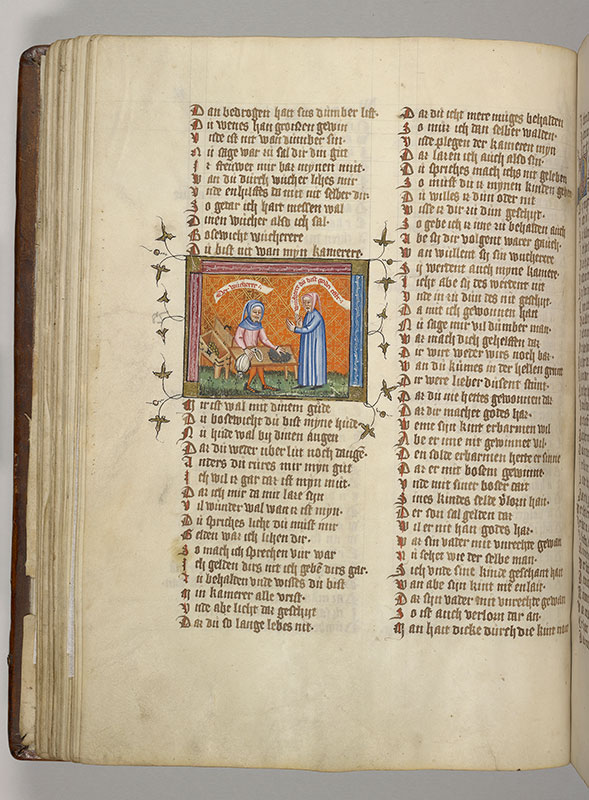 Dan bedrogen hait sus dumber list
Du wenes han groissen gewin
Vnde ist nit wan dumber sin
Nu sage war zu sal dir din gut
Jr steuwer mir bar mynen mut
Wan du durch wucher lihes mir
Vnde enhilffes da mit nit selber dir
So getar ich hart messen wal
Dinen wucher also ich sal
Bosewicht wucherere
Du bist nit wan myn kamerere
wucherere
Mir ist wal mit dinem gude
Du bosewicht du bist myne hude
Nu hude wal bij dinen augen
Daz du weder uber lut noch daugen
Anders du rures mir myn gut
Jch wil iz gar daz ist myn mut
Daz ich mir da mit laze syn
Vil wunder wal wan iz ist myn
Du spriches licht du must mir
Gelden waz ich lihen dir
So mach ich sprechen vur war
Jch gelden dirs nit ich geben dirs gar
Zu behalden vnde wistes du bist
Min kamerer alle vrist
Vnde abe licht daz geschiht
Daz du so lange lebes nit
Daz du icht mere muges behalden
So muz ich dan selber walden
Vnde plegen der kameren myn
Daz lazen ich auch also sin
Du spriches mach ichs nit geleben
So must du iz mynen kinden geben
Du willes iz dun oder nit
Wisse iz dir zu dun geschiht
So gebe ich iz ime zu behalden auch
Abe sij dir volgent warer gauch
Wan willent sij sin wucherere
Sij werdent auch myne kamere
Jcht abe sij des werdent nit
Vnde in zu dun des nit geschiht
Da mit ich gewonnen hait
Nu sage mir vil dumber man
Waz mach dich gehelffen daz
Dir wirt weder wirs noch baz
Wan du kumes in der hellen grunt
Dir were lieber dusent stunt
Daz du nit hettes gewonnen daz
Daz dir machet godes haz
Weme sin kint erbarmen wil
Abe er ime nit gewinnet vil
Den solde erbarmen hette er sinne
Daz er mit bosem gewinne
Vnde mit siner boser tait
Sines kindes selde vlorn hait
Der son sal gelden daz
Wil er nit han godes haz
Waz sin vader mit vnrechte gewan
Nu sehet wie der selbe man
Sich vnde sine kinde geschant hait
Wan abe sijn kint nit enlait
Daz sijn vader mit vnrechte gewan
So ist auch verlorn dar an
Man hait dicke durch die kint